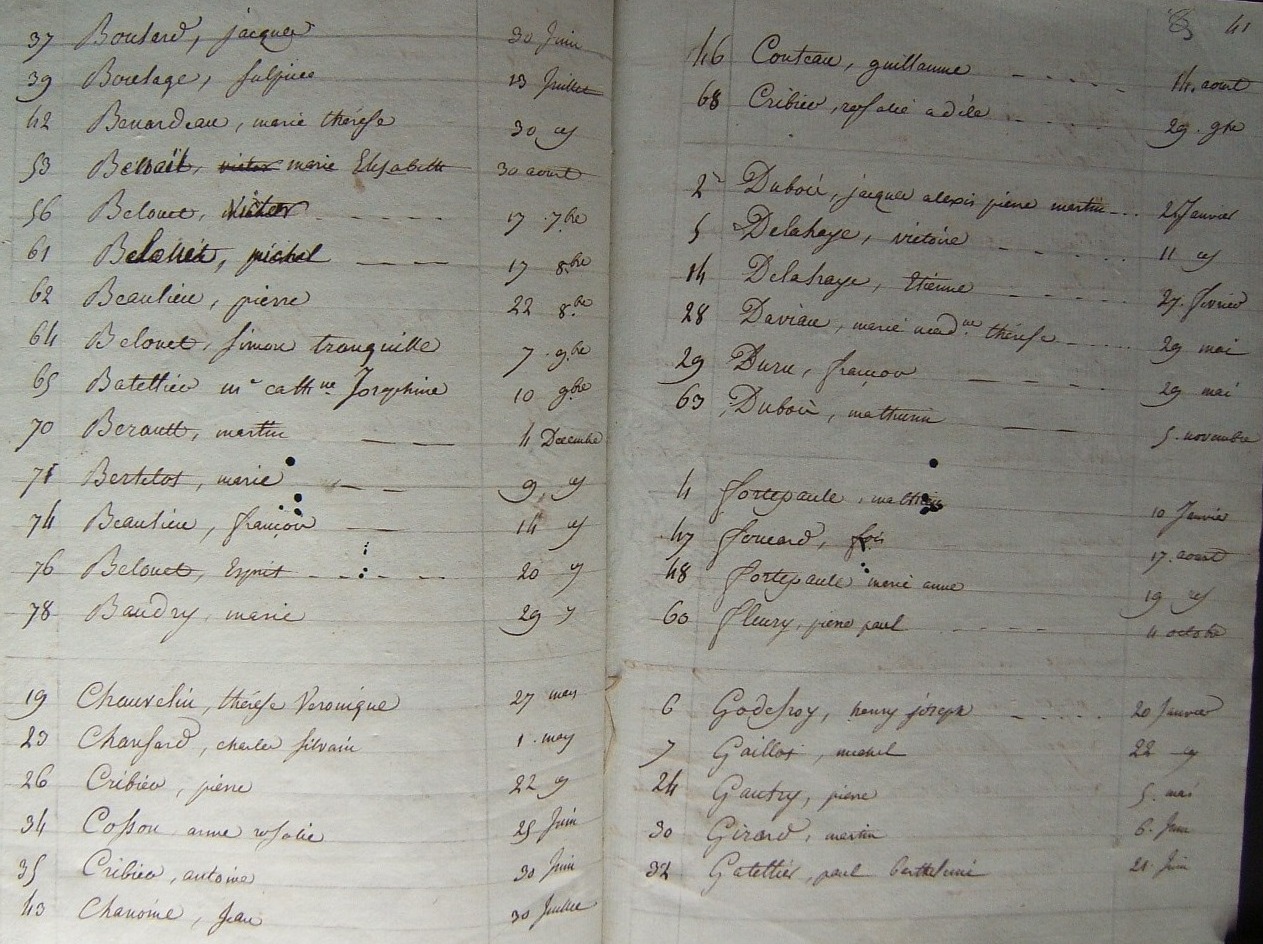 37 Boutard, jacques 30 Juin
39 Boulage, sulpice 13 Juillet
42 Benardeau, marie thérèse 30 ay
53 Benoit, victor marie Elisabeth 30 aout
56 Belouet, Victor 17 7bre
61 Belouet, michel 17 8bre
62 Beaulieu, pierre 22 8bre
64 Belouet, simon tranquille 7 9bre
65 Batellier me cathne Josephine 10 9bre
70 Berault, martin 4 Decembre
71 Bertelot, marie 9 ay
74 Beaulieu, françois 14 ay
76 Belouet, Esprit 20 ay
78 Baudry, marie 29 ay
19 Chauvelin, thérèse Veronique 27 mars
23 Chaufard, charles silvain 1 may
26 Cribier, pierre 22 ay
34 Cosson anne rosalie 25 Juin
35 Cribier, antoine 30 Juin
43 Chanoine, Jean 30 Juillet
41
46 Couteau, guillaume 14. aout
68 Cribier, rosalie adèle 29. 9bre
2 Dubois, jacques alexis pierre martin 2 Janvier
5 Delahaye, victoire 11 ay
14 Delahaye, Etienne 27. fevrier
28 Daviau, marie thérèse 29 mai
29 Duru, françois 29 mai
63 Dubois, mathurin 5. novembre
4 fortepaule, mathieu 10 Janvier
47 foucard, fois 17. aout
48 fortepaule marie anne 19 ay
60 fleury, pierre paul 4 octobre
6 Godefroy, henry joseph 20 Janvier
7 Gaillot, michel 22 ay
24 Gautry, pierre 5. mai
30 Girard, martin 6. Juin
32 Gatellier, paul barthelemi 21. Juin